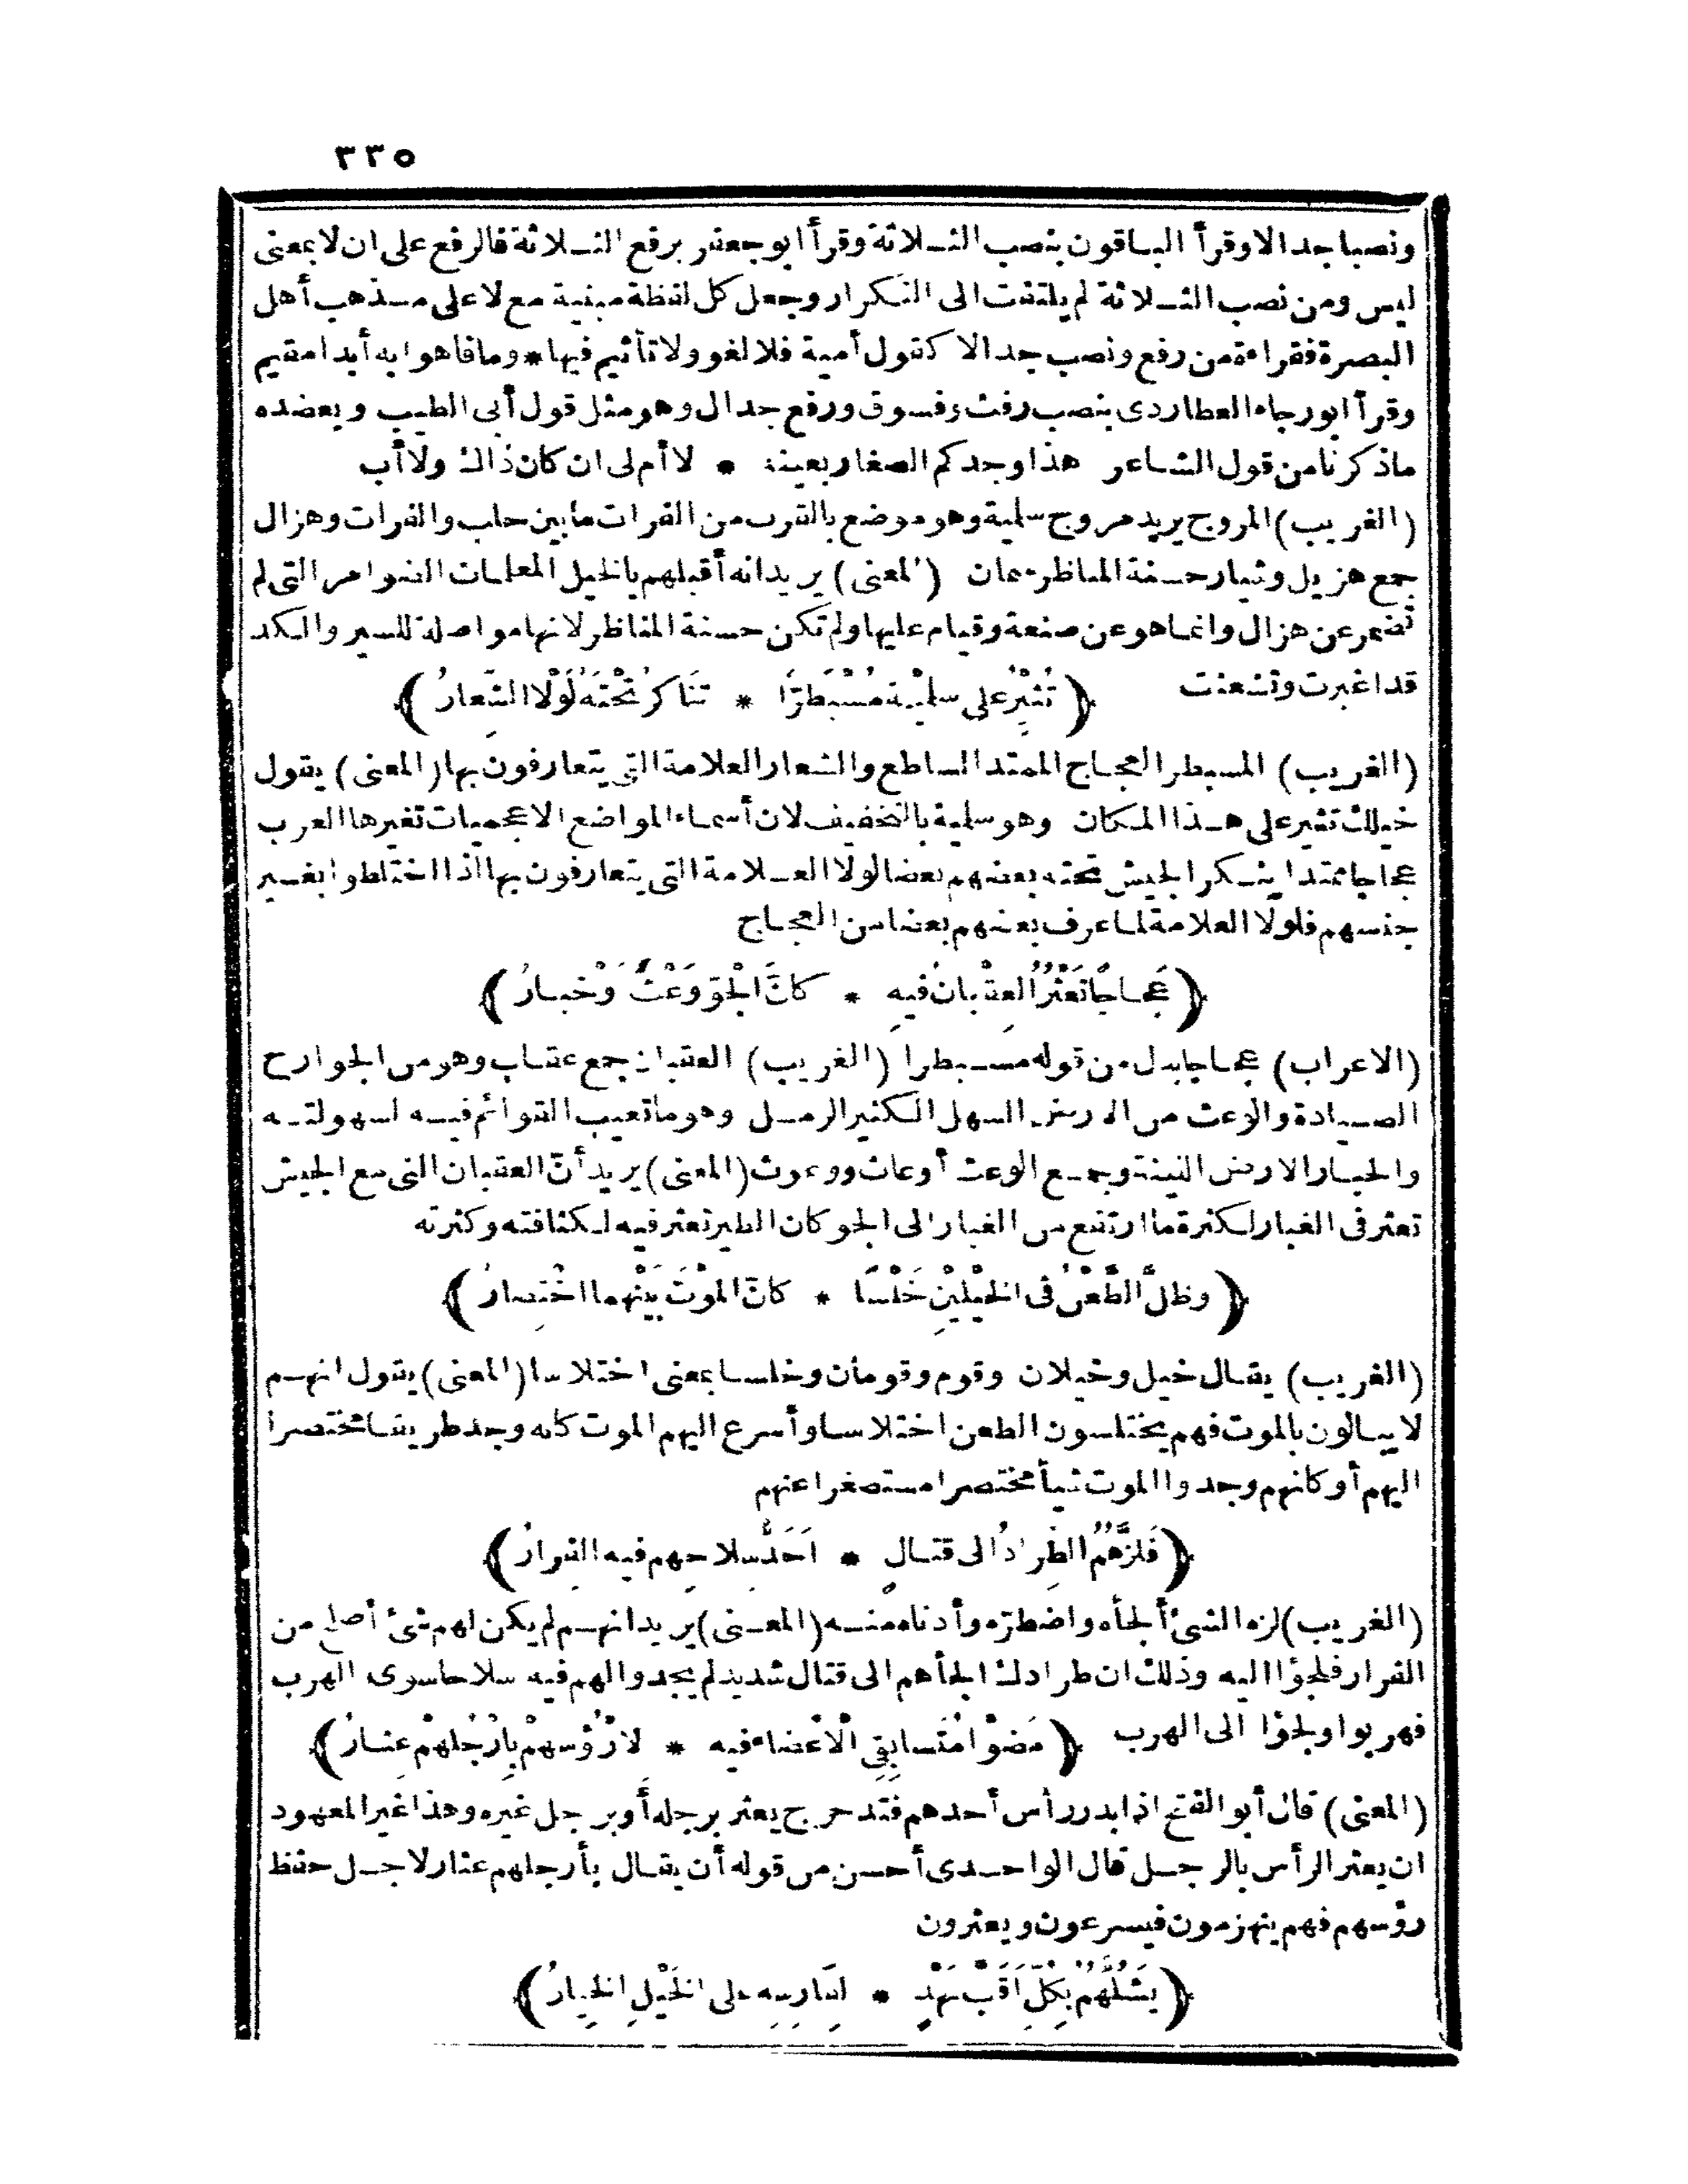 ٣٣٥
ونصبا جدالا وقرأ الباقون بنصب الثلاثة وقرأ ابو جعفر برفع الثلاثة فالرفع على ان لا بمعنى
ليس ومن نصب الثلاثة لم يلتفت الى التكرار وجعل كل لفظة مبنية مع لا على مذهب أهل
البصرة فقراءة من رفع ونصب جدالا كقول أمية فلا لغو ولا تأثيم فيها * وما فاهوا به أبدا مقيم
وقرأ ابو رجاء العطاردى بنصب رفث وفسوق ورفع جدال وهو مثل قول أبى الطيب ويعضده
ماذكرنا من قول الشاعر هذا وجدكم الصغار بعينه * لا أم لى ان كان ذاك ولا أب
(الغريب) المروج يريد مروج سلمية وهو موضع بالقرب من الفرات ما بين حلب والفرات وهزال
جمع هزيل وشيار حسنة المناظر سمان (المعنى) يريد انه أقبلهم بالخيل المعلمات الضوامر التى لم
تضمر عن هزال وانما هو عن صنعة وقيام عليها ولم تكن حسنة المناظر لانها مواصلة للسير والكد
قد اغبرت وتشعثت ﴿تُثِيْرُ على سلمْيَة مُسْبَطِرًّا * تَنَاكرُ تَحْتَهُ لَوْلا الشِّعارُ﴾
(الغريب) المسبطر العجاج الممتد الساطع والشعار العلامة التى يتعارفون بها (المعنى) يقول
خيلك تثير على هذا المكان وهو سلمية بالتخفيف لان أسماء المواضع الاعجميات تغيرها العرب
عجاجا ممتدا ينكر الجيش تحته بعضهم بعضا لولا العلامة التى يتعارفون بها اذا اختلطوا بغير
جنسهم فلولا العلامة لما عرف بعضهم بعضا من العجاج
﴿عَجاجًا تَعْثُرُ العِقْبانُ فيهِ * كأنَّ الجَوّ وَعْثٌ وَخْبارُ﴾
(الاعراب) عجاجا بدل من قوله مسبطرا (الغريب) العقبان جمع عقاب وهو من الجوارح
الصيادة والوعث من الارض السهل الكثير الرمل وهو ما تعيب القوائم فيه لسهولته
والخبار الارض اللينة وجمع الوعث أوعاث ووعوث (المعنى) يريد أنّ العقبان التى مع الجيش
تعثر فى الغبار لكثرة ما ارتفع من الغبار الى الجو كان الطير تعثر فيه لكثافته وكثرته
﴿وظلّ الطَّعْنُ فى الخَيْلَيْنِ خَلْسًا * كانّ المَوْتَ بَيْنَهما اخْتِصارُ﴾
(الغريب) يقال خيل وخيلان وقوم وقومان وخلسا بمعنى اختلاسا (المعنى) يقول انهم
لا يبالون بالموت فهم يختلسون الطعن اختلاسا وأسرع اليهم الموت كانه وجد طريقا مختصرا
اليهم أو كانهم وجدوا الموت شيأ مختصرا مستصغرا عنهم
﴿فَلَزَّهُمُ الطِّرادُ الى قتالٍ * اَحَدُّ سِلاحِهم فيه الفِرارُ﴾
(الغريب) لزه الشئ ألجأه واضطرّه وأدناه منه (المعنى) يريد انهم لم يكن لهم شئ أصلح من
الفرار فلجؤا اليه وذلك ان طرادك الجأهم الى قتال شديد لم يجدوا لهم فيه سلاحا سوى الهرب
فهربوا ولجؤا الى الهرب ﴿مَضَوْا مُتَسابِقِى الْاَعْضاء فيه * لاَرْؤُسِهِمْ بِاَرْجُلِهِمْ عِثارُ﴾
(المعنى) قال أبو الفتح اذا بدر رأس أحدهم فتدحرج يعثر برجله أو برجل غيره وهذا غير المعهود
ان يعثر الرأس بالرجل قال الواحدى أحسن من قوله أن يقال بأرجلهم عثار لاجل حفظ
رؤسهم فهم ينهزمون فيسرعون ويعثرون
﴿يَشُلُّهُمُ بِكُلِّ اَقَبّ نَهْدٍ * لِفارِسِهِ على الخَيْلِ الخِيارُ﴾